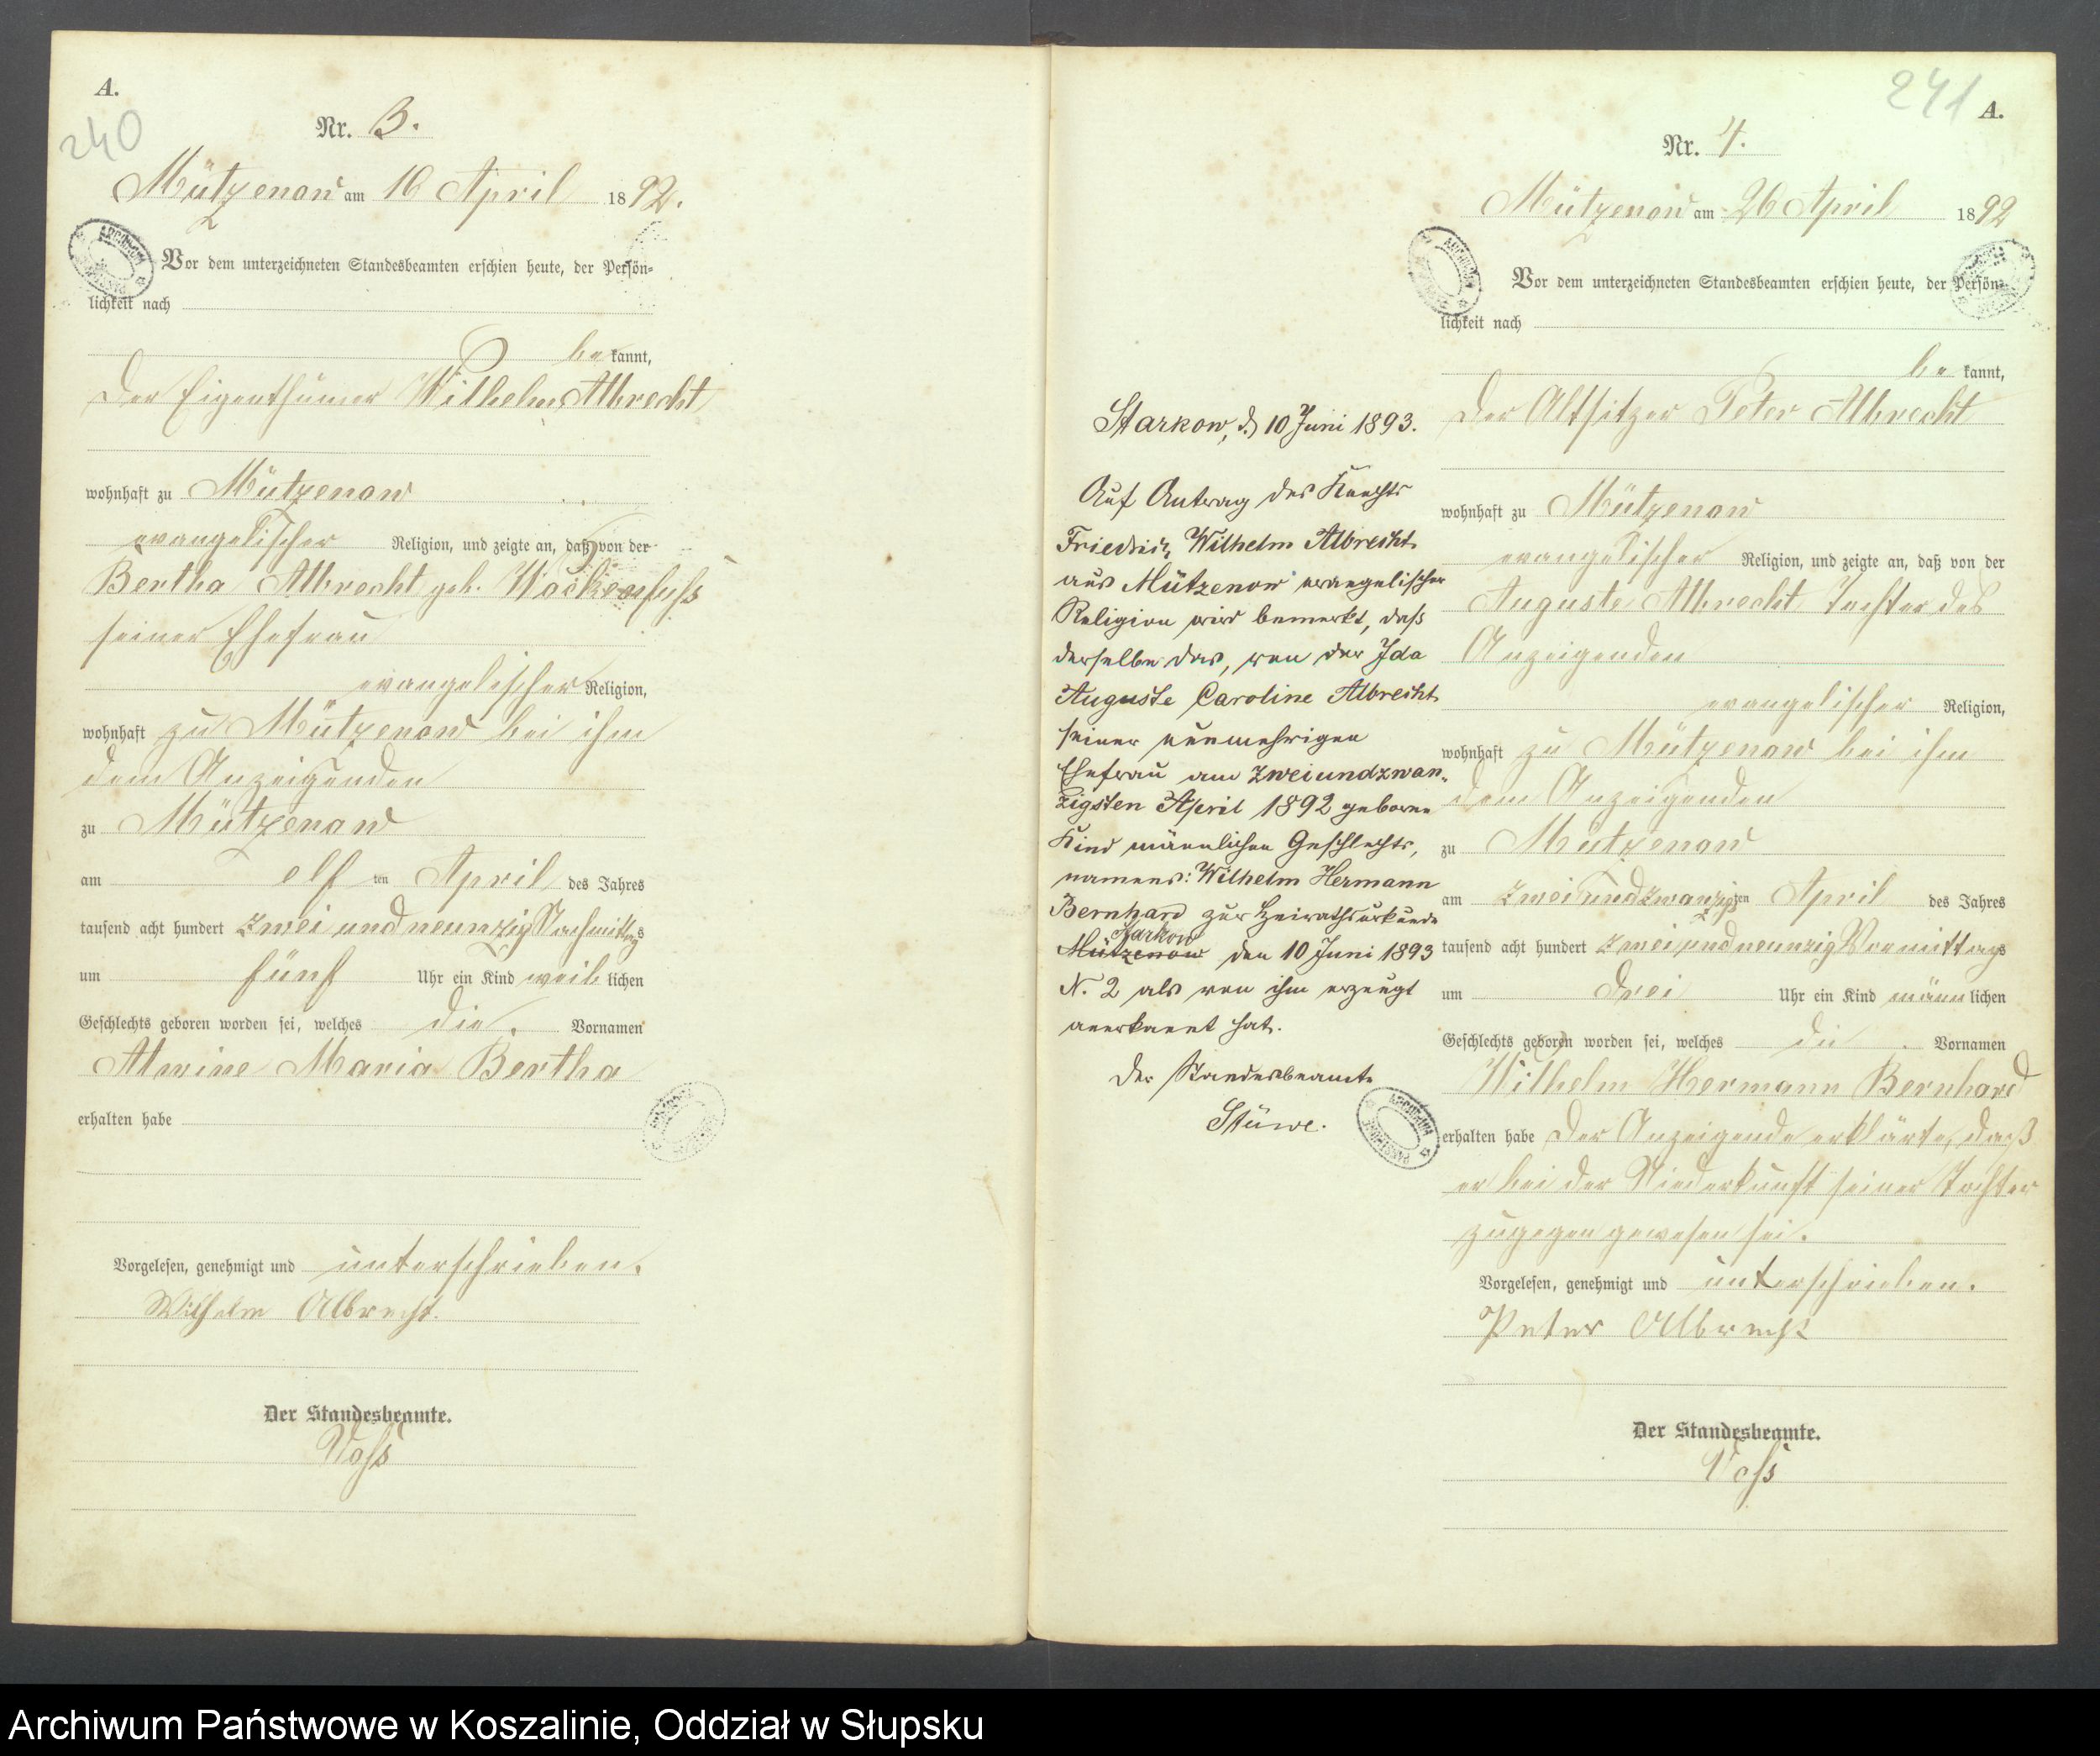 A.
240
Nr. 3.
Mützenow am 16 April 1892.
Vor dem unterzeichneten Standesbeamten erschien heute, der Persön-
lichkeit nach
be kannt,
der Eigenthümer Wilhelm Albrecht
wohnhaft zu Mützenow
evangelischer Religion, und zeigte an, daß von der
Bertha Albrecht geb.
seiner Ehefrau
evangelischer Religion,
wohnhaft zu Mützenow bei ihm
dem Anzeigenden
zu Mützenow
am elf ten April des Jahres
tausend acht hundert zwei und neunzig Nachmittags
um fünf Uhr ein Kind weib lichen
Geschlechts geboren worden sei, welches die Vornamen
Alwine Maria Bertha
erhalten habe
Vorgelesen, genehmigt und unterschrieben.
Wilhelm Albrecht.
Der Standesbeamte.
Voß
241
A.
Nr. 4.
Mützenow am 26 April 1892
Vor dem unterzeichneten Standesbeamten erschien heute, der Persön-
lichkeit nach
be kannt,
der Altsitzer Peter Albrecht
wohnhaft zu Mützenow
evangelischer Religion, und zeigte an, daß von der
Auguste Albrecht Tochter des
Anzeigenden
evangelischer Religion,
wohnhaft zu Mützenow bei ihm
dem Anzeigenden
zu Mützenow
am zwei und zwanzigsten April des Jahres
tausend acht hundert zwei und neunzig Vormittags
um drei Uhr ein Kind männ lichen
Geschlechts geboren worden sei, welches die Vornamen
Wilhelm Hermann Bernhard
erhalten habe Der Anzeigende erklärte, daß
er bei der Niederkunft seiner Tochter
zugegen gewesen sei.
Vorgelesen, genehmigt und unterschrieben.
Peter Albrecht
Der Standesbeamte.
Voß
Starkow, d. 10 Juni 1893.
Auf Antrag des Knechts
Friedrich Wilhelm Albrecht
aus Mützenow evangelischer
Religion wird bemerkt, daß
derselbe das, von der Ida
Auguste Caroline Albrecht
seiner nunmehrigen
Ehefrau am zweiundzwan-
zigsten April 1892 geborne
Kind männlichen Geschlechts,
namens: Wilhelm Hermann
Bernhard zur Heirathsurkunde
Starkow
Mützenow den 10 Juni 1893
N. 2 als von ihm erzeugt
anerkannt hat.
Der Standesbeamte
Stüwe.
Archiwum Państwowe w Koszalinie, Oddział w Słupsku